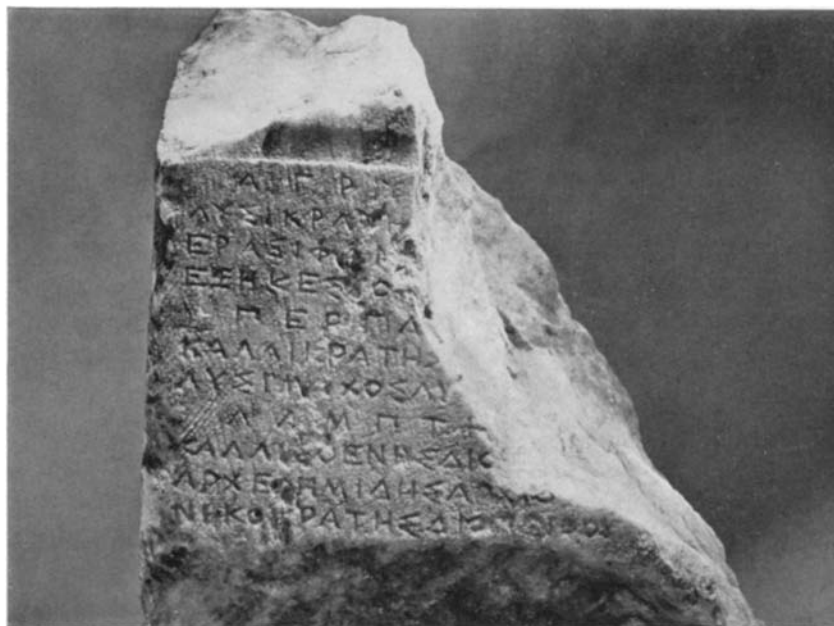 ΑΓΡΥ
ΛΥΣΙΚΡΑΤΗ
ΕΡΑΣΙΦ
ΕΞΗΚΕΣΤΟ
ΠΕΡΓΑ
ΚΑΛΛΙΚΡΑΤΗΣ
ΛΥΣΙΜΑΧΟΣΛΥ
ΛΑΜΠΤ
ΚΑΛΛΙΣΘΕΝΗΣΔΙΟ
ΑΡΧΕΔΗΜΙΔΗΣΑΡΧΙΟ
ΝΗΚΟΚΡΑΤΗΣΔΙ